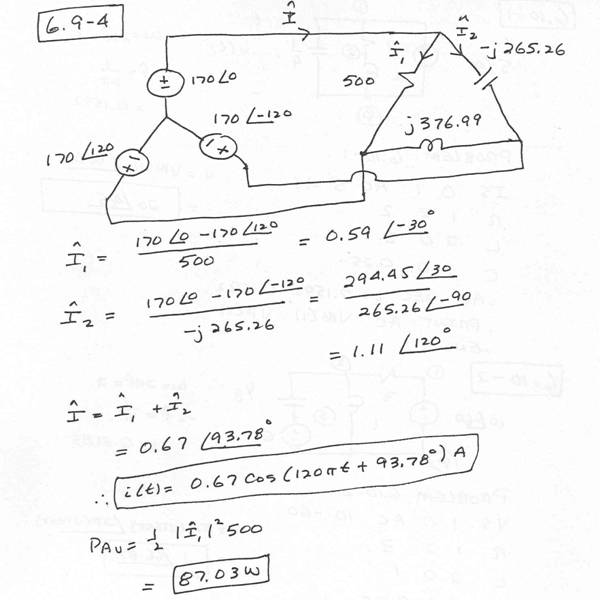 6.9-4
Î
Î₁
Î₂
-j265.26
500
170∠0
170∠-120
170∠120
j376.99
Î₁ = (170∠0 - 170∠120) / 500 = 0.59 ∠-30°
Î₂ = (170∠0 - 170∠-120) / (-j265.26) = (294.45∠30) / (265.26∠-90)
= 1.11 ∠120°
Î = Î₁ + Î₂
= 0.67 ∠93.78°
∴ i(t) = 0.67 cos(120πt + 93.78°) A
PAV = 1/2 |Î₁|² 500
= 87.03W